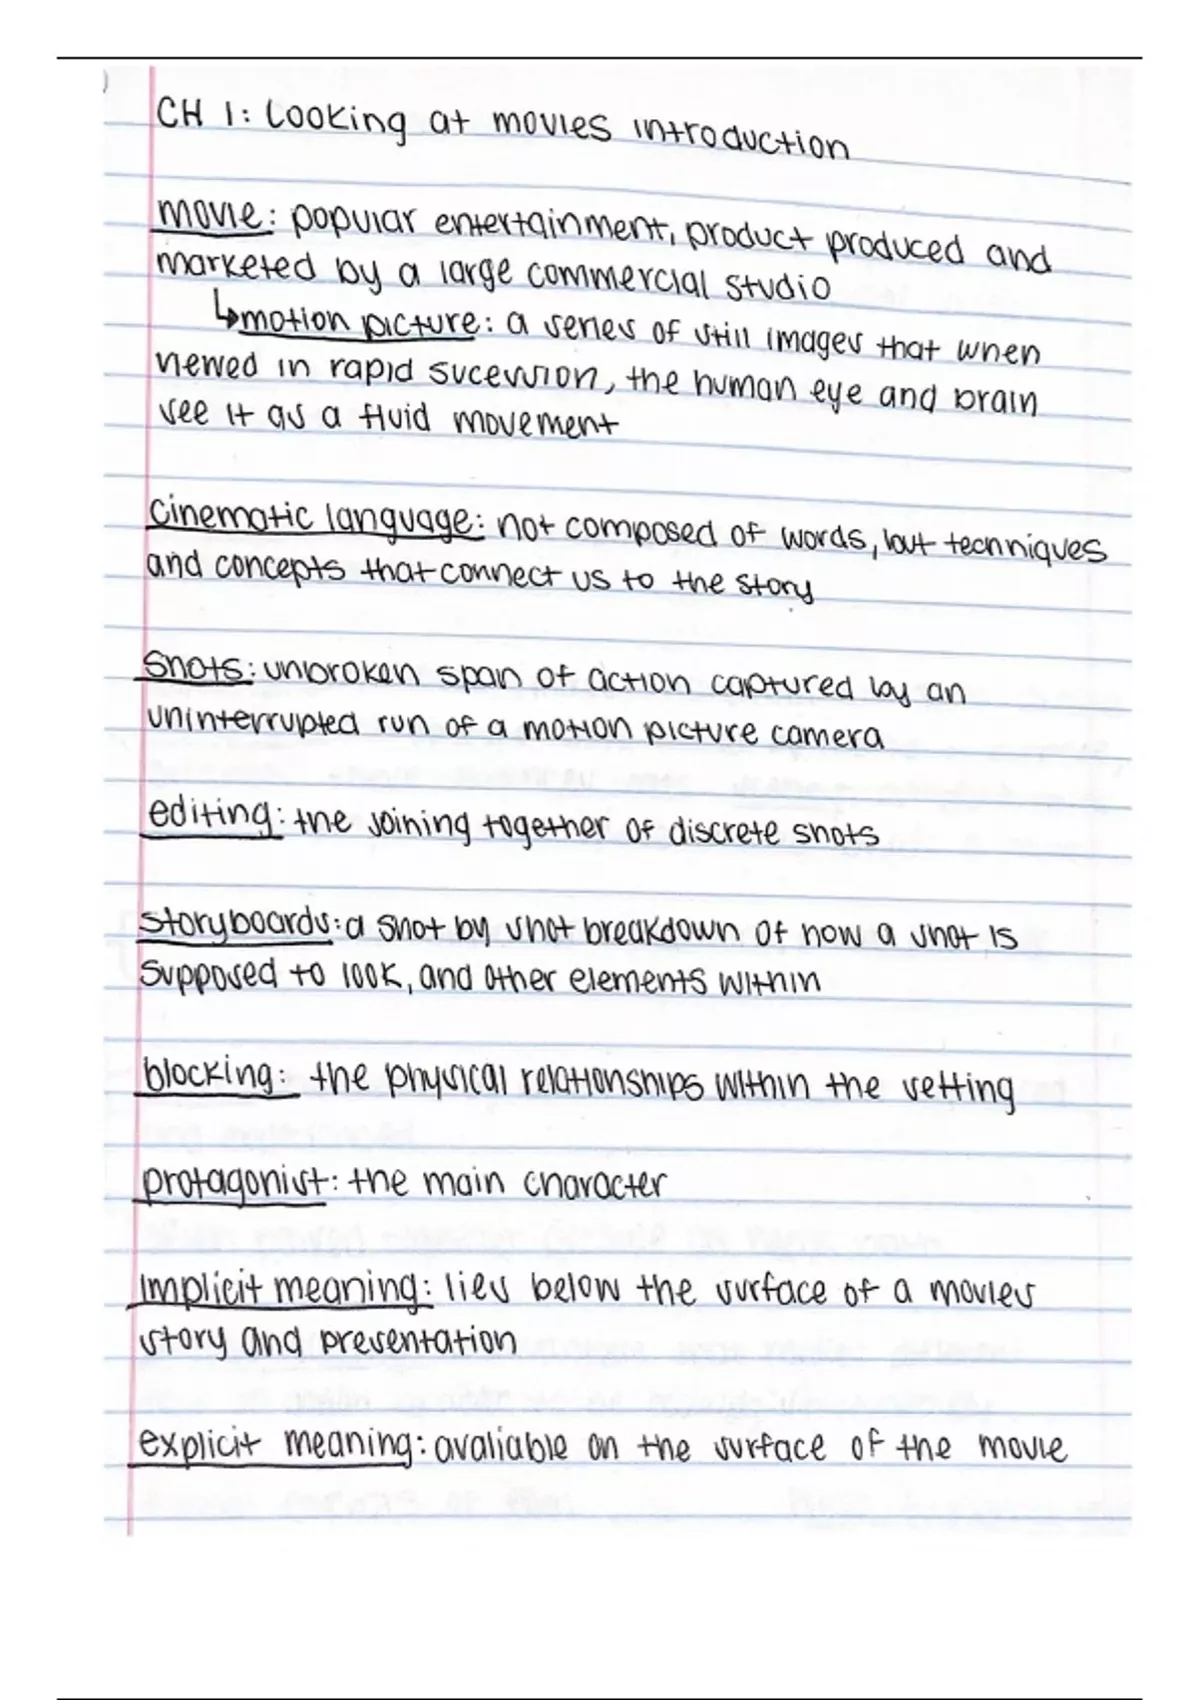 CH 1: Looking at movies introduction
movie: popular entertainment, product produced and
marketed by a large commercial studio
↳motion picture: a series of still images that when
viewed in rapid sucession, the human eye and brain
see it as a fluid movement
cinematic language: not composed of words, but techniques
and concepts that connect us to the story
Shots: unbroken span of action captured by an
uninterrupted run of a motion picture camera
editing: the joining together of discrete shots
storyboards: a shot by shot breakdown of how a shot is
supposed to look, and other elements within
blocking: the physical relationships within the setting
protagonist: the main character
implicit meaning: lies below the surface of a movies
story and presentation
explicit meaning: avaliable on the surface of the movie